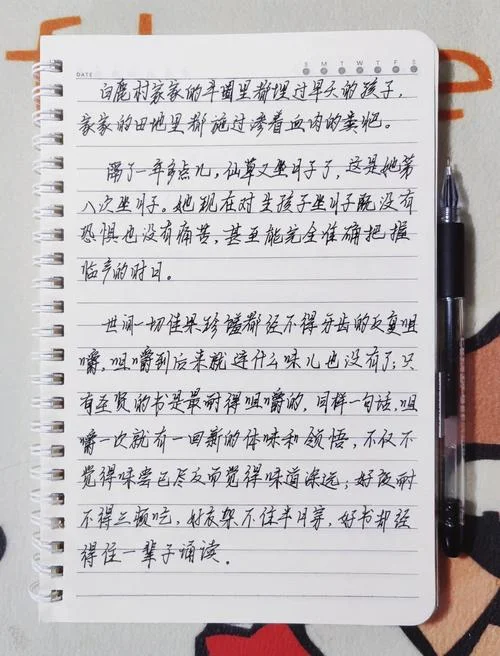 DATE
S M T W T F S
白鹿村家家的牛圈里都埋过早夭的孩子，
家家的田地里都施过渗着血肉的粪肥。
隔了一年多点儿，仙草又坐月子了，这是她第
八次坐月子。她现在对生孩子坐月子既没有
恐惧也没有痛苦，甚至能完全准确把握
临产的时日。
世间一切佳果珍馐都经不得牙齿的反复咀
嚼，咀嚼到后来就连什么味儿也没有了；只
有圣贤的书是最耐得咀嚼的，同样一句话，咀
嚼一次就有一回新的体味和领悟，不仅不
觉得味尝已尽反而觉得味道深远；好饭耐
不得三顿吃，好衣架不住半月穿，好书却经
得住一辈子诵读。